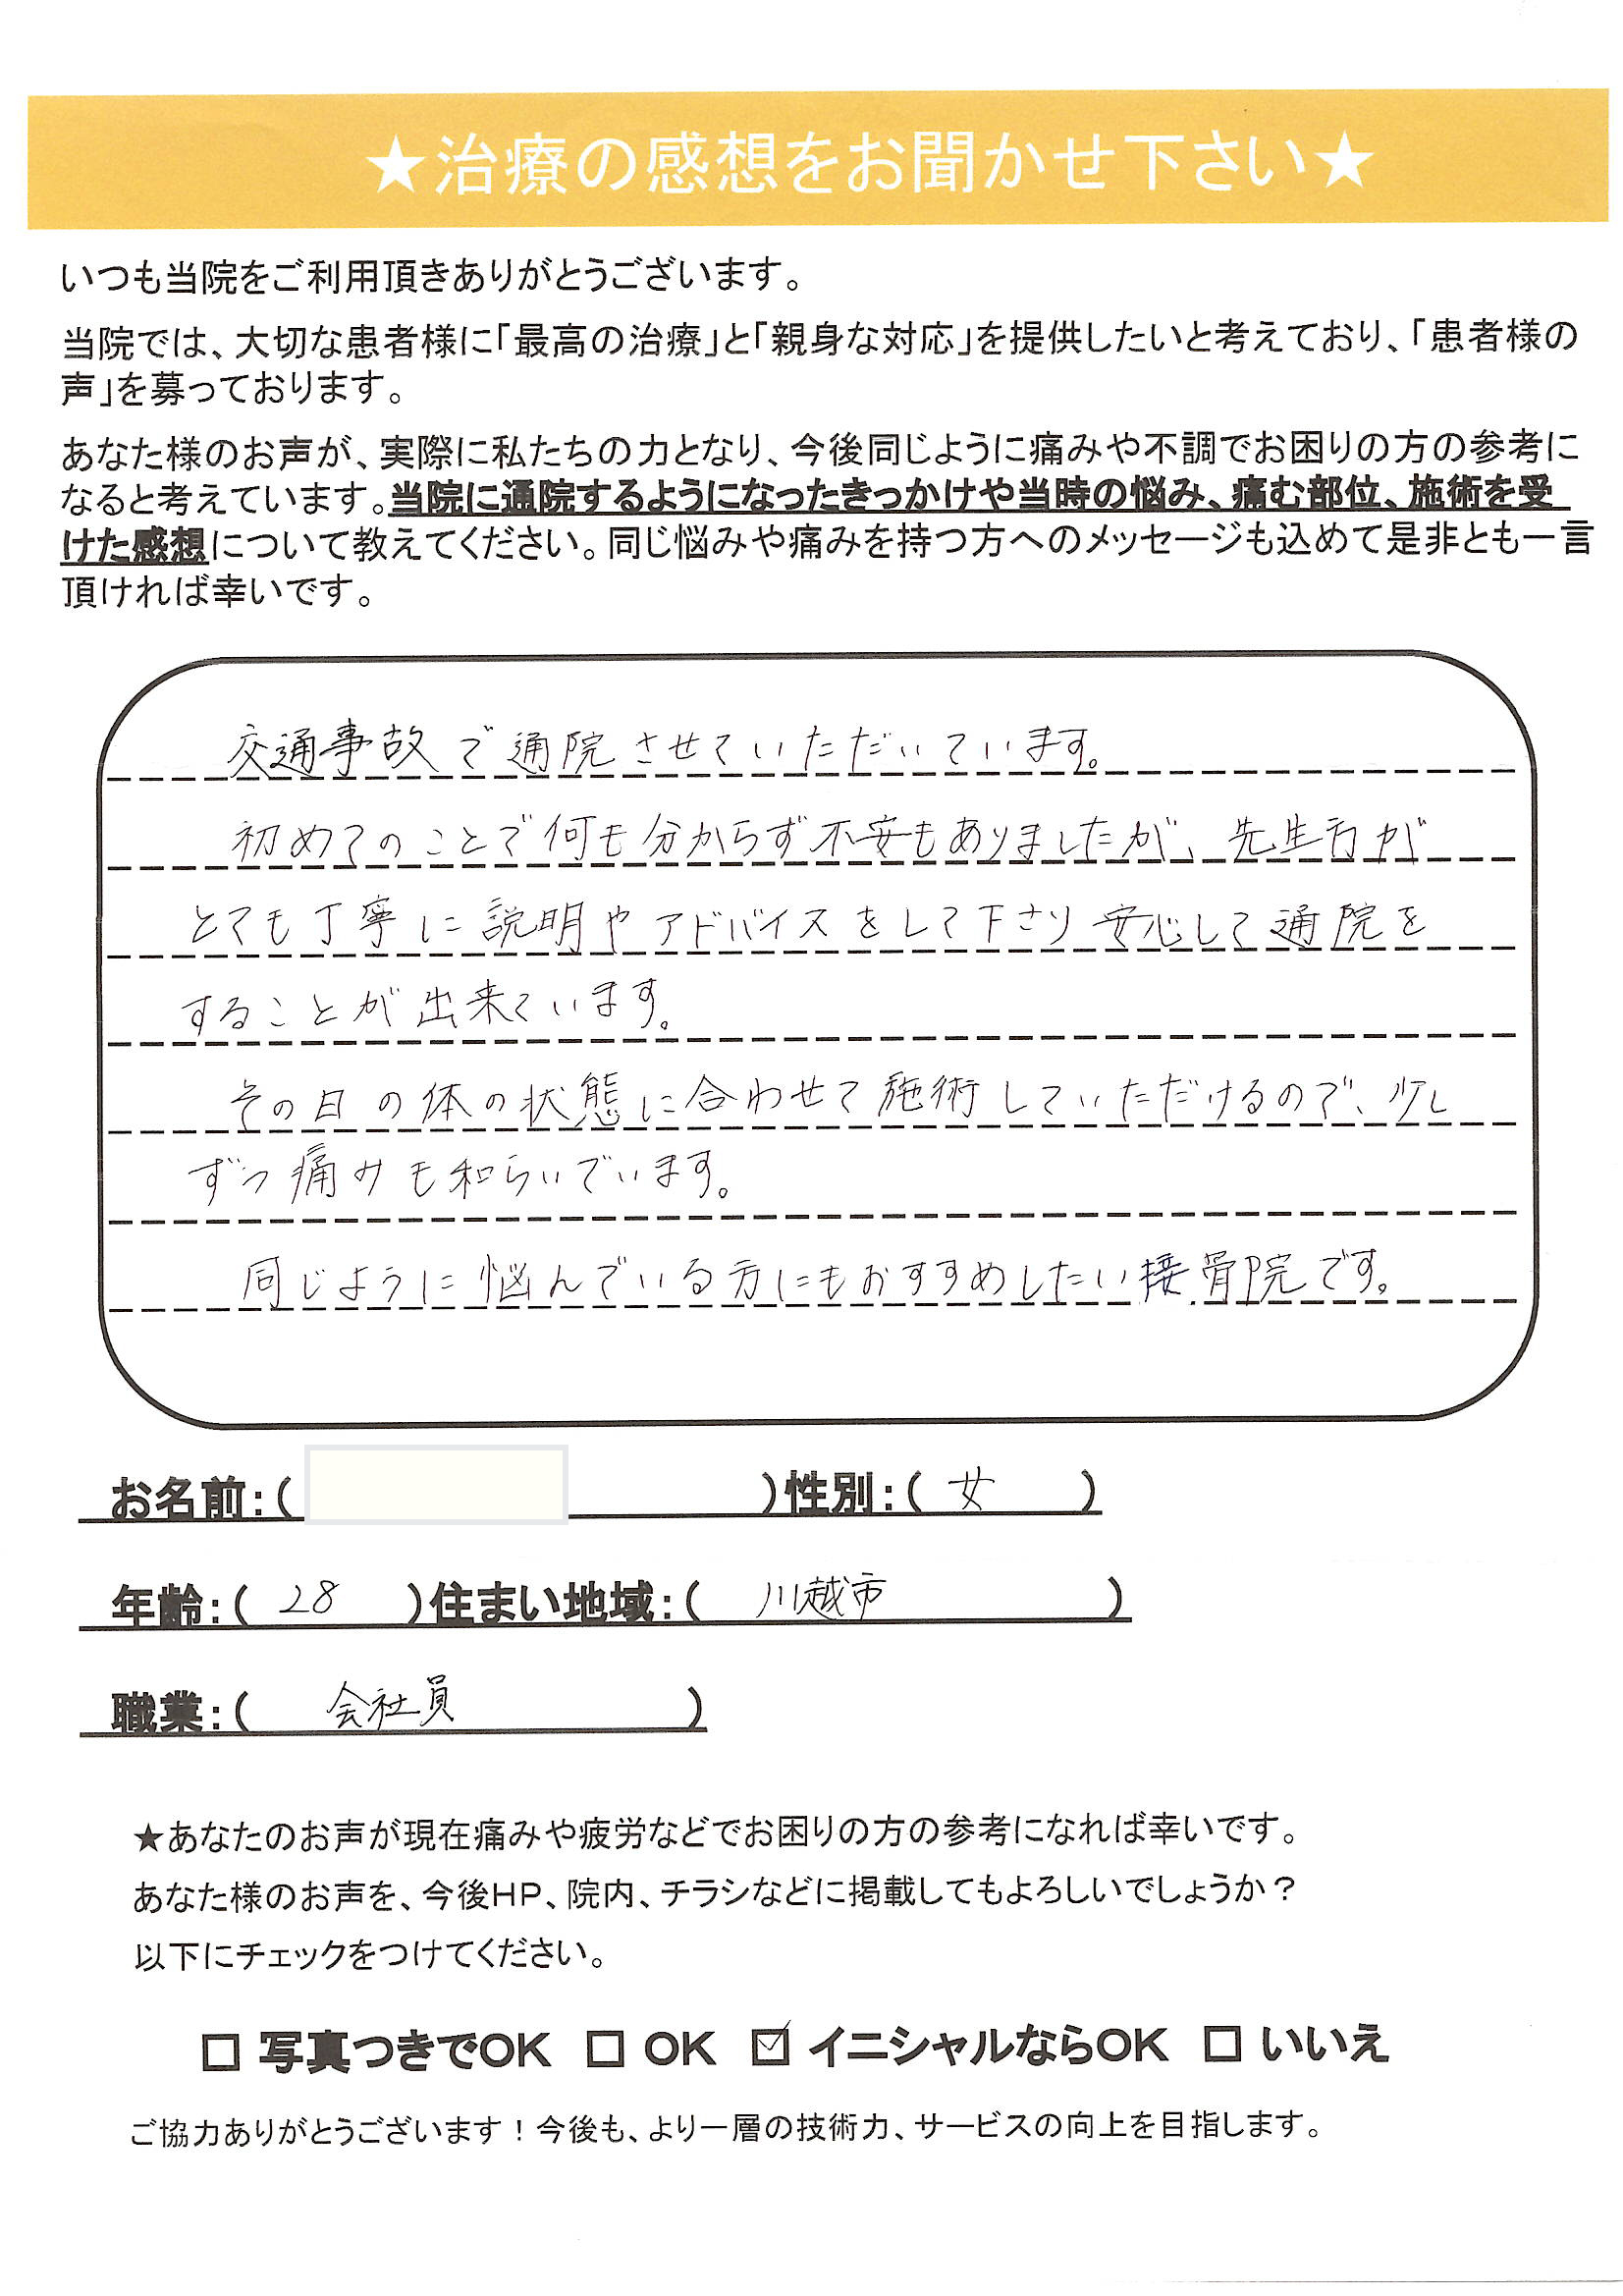 ★治療の感想をお聞かせ下さい★
いつも当院をご利用頂きありがとうございます。
当院では、大切な患者様に「最高の治療」と「親身な対応」を提供したいと考えており、「患者様の
声」を募っております。
あなた様のお声が、実際に私たちの力となり、今後同じように痛みや不調でお困りの方の参考に
なると考えています。当院に通院するようになったきっかけや当時の悩み、痛む部位、施術を受
けた感想について教えてください。同じ悩みや痛みを持つ方へのメッセージも込めて是非とも一言
頂ければ幸いです。
交通事故で通院させていただいています。
初めてのことで何も分からず不安もありましたが、先生方が
とても丁寧に説明やアドバイスをして下さり安心して通院を
することが出来ています。
その日の体の状態に合わせて施術していただけるので、少し
ずつ痛みも和らいでいます。
同じように悩んでいる方にもおすすめしたい接骨院です。
お名前:( )性別:( 女 )
年齢:( 28 )住まい地域:( 川越市 )
職業:( 会社員 )
★あなたのお声が現在痛みや疲労などでお困りの方の参考になれば幸いです。
あなた様のお声を、今後HP、院内、チラシなどに掲載してもよろしいでしょうか?
以下にチェックをつけてください。
□ 写真つきでOK □ OK ☑ イニシャルならOK □ いいえ
ご協力ありがとうございます!今後も、より一層の技術力、サービスの向上を目指します。